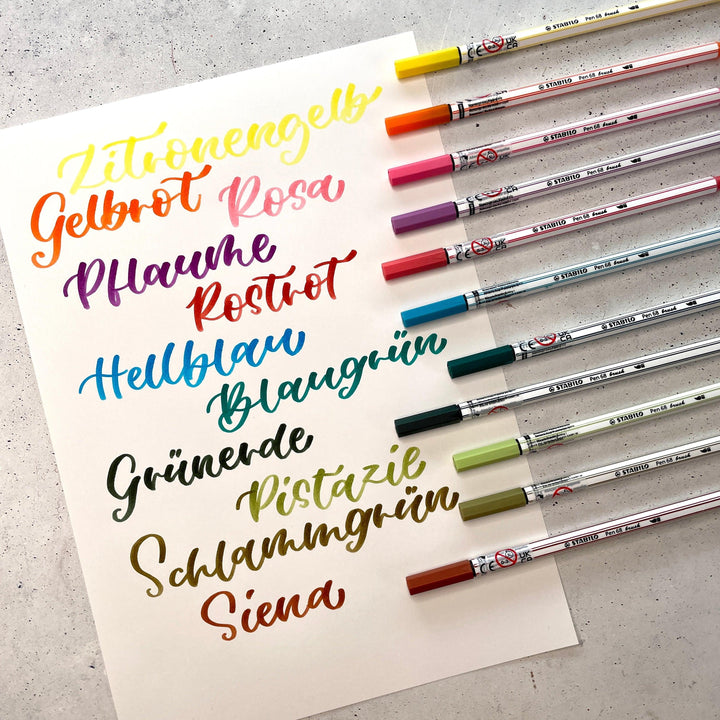 Zitronengelb
Gelbrot Rosa
Pflaume
Rostrot
Hellblau
Blaugrün
Grünerde
Pistazie
Schlammgrün
Siena
STABILO Pen 68 brush
STABILO Pen 68 brush
STABILO Pen 68 brush
STABILO Pen 68 brush
STABILO Pen 68 brush
STABILO Pen 68 brush
STABILO Pen 68 brush
STABILO Pen 68 brush
STABILO Pen 68 brush
STABILO Pen 68 brush
STABILO Pen 68 brush